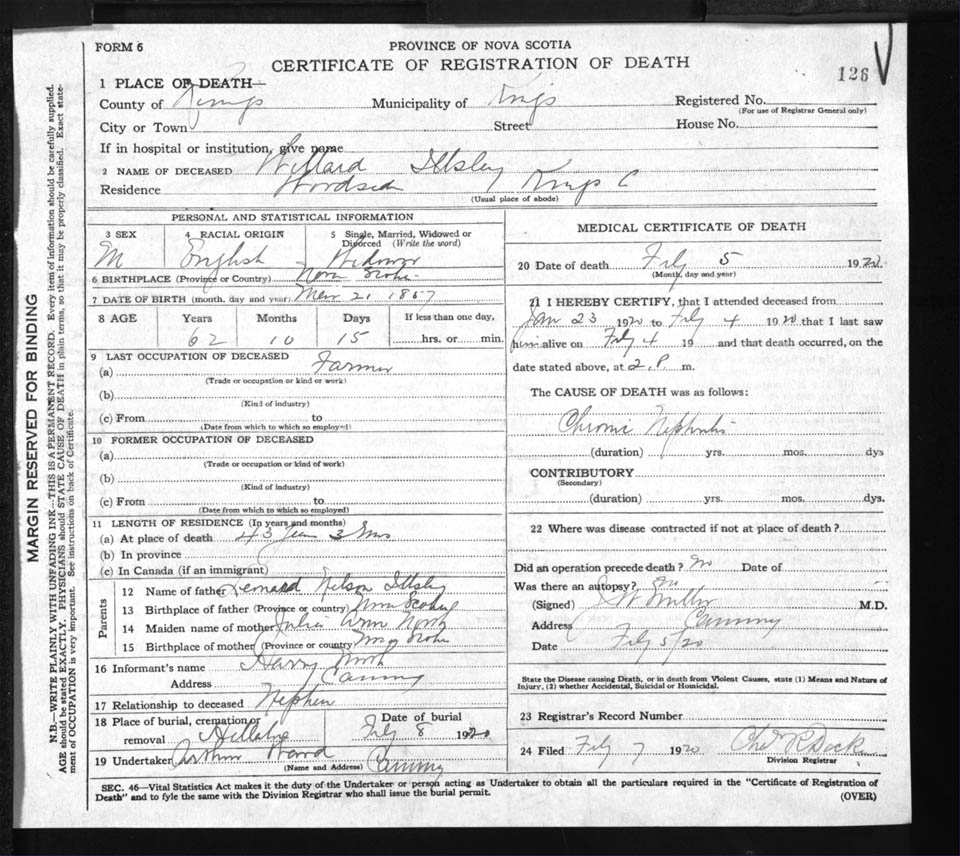 FORM 6
PROVINCE OF NOVA SCOTIA
CERTIFICATE OF REGISTRATION OF DEATH
126
1 PLACE OF DEATH
County of Kings Municipality of Kings Registered No.
(For use of Registrar General only)
City or Town Street House No.
If in hospital or institution, give name
2 NAME OF DECEASED Willard Illsley
Residence Woodside Kings C
(Usual place of abode)
MARGIN RESERVED FOR BINDING
N.B.—WRITE PLAINLY WITH UNFADING INK—THIS IS A PERMANENT RECORD. Every item of information should be carefully supplied.
AGE should be stated EXACTLY. PHYSICIANS should STATE CAUSE OF DEATH in plain terms, so that it may be properly classified. Exact state-
ment of OCCUPATION is very important. See instructions on back of Certificate.
PERSONAL AND STATISTICAL INFORMATION
3 SEX 4 RACIAL ORIGIN 5 Single, Married, Widowed or
Divorced (Write the word)
M English Widower
6 BIRTHPLACE (Province or Country) Nova Scotia
7 DATE OF BIRTH (month, day and year) Mar 21 1857
8 AGE Years Months Days If less than one day,
62 10 15 hrs. or min.
9 LAST OCCUPATION OF DECEASED
(a) Farmer
(Trade or occupation or kind or work)
(b)
(Kind of industry)
(c) From to
(Date from which to which so employed)
10 FORMER OCCUPATION OF DECEASED
(a)
(Trade or occupation or kind of work)
(b)
(Kind of industry)
(c) From to
(Date from which to which so employed)
11 LENGTH OF RESIDENCE (In years and months)
(a) At place of death 43 Years 3 Mos
(b) In province
(c) In Canada (if an immigrant)
Parents
12 Name of father Leonard Nelson Illsley
13 Birthplace of father (Province or country) Nova Scotia
14 Maiden name of mother Julia Ann North
15 Birthplace of mother (Province or country) Nova Scotia
16 Informant's name Harry North
Address Canning
17 Relationship to deceased Nephew
18 Place of burial, cremation or Date of burial
removal Hillaton Feby 8 1920
19 Undertaker Arthur Ward Canning
(Name and Address)
MEDICAL CERTIFICATE OF DEATH
20 Date of death Feby 5 1920
(Month, day and year)
21 I HEREBY CERTIFY, that I attended deceased from
Jan 23 1920 to Feby 4 1920 that I last saw
him alive on Feby 4 19 and that death occurred, on the
date stated above, at 2.P. m.
The CAUSE OF DEATH was as follows:
Chronic Nephritis
(duration) yrs. mos. dys
CONTRIBUTORY
(Secondary)
(duration) yrs. mos. dys.
22 Where was disease contracted if not at place of death?
Did an operation precede death? No Date of
Was there an autopsy? No
(Signed) Miller M.D.
Address Canning
Date Feby 5/20
State the Disease causing Death, or in death from Violent Causes, state (1) Means and Nature of
Injury, (2) whether Accidental, Suicidal or Homicidal.
23 Registrar's Record Number
24 Filed Feby 7 1920
Division Registrar
SEC. 46—Vital Statistics Act makes it the duty of the Undertaker or person acting as Undertaker to obtain all the particulars required in the "Certificate of Registration of
Death" and to fyle the same with the Division Registrar who shall issue the burial permit.
(OVER)